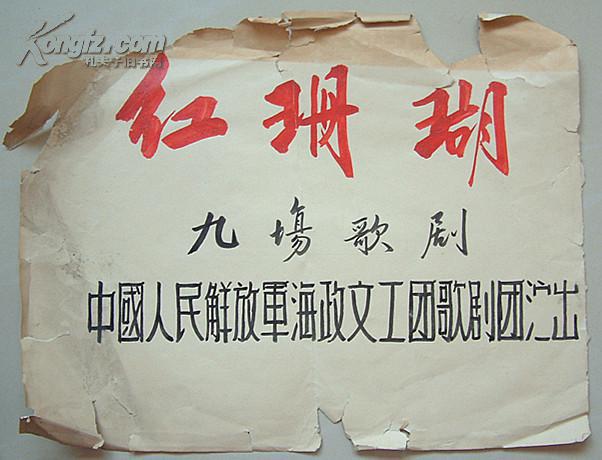 Kongfz.com
孔夫子旧书网
红珊瑚
九場歌剧
中國人民解放軍海政文工团歌剧团演出